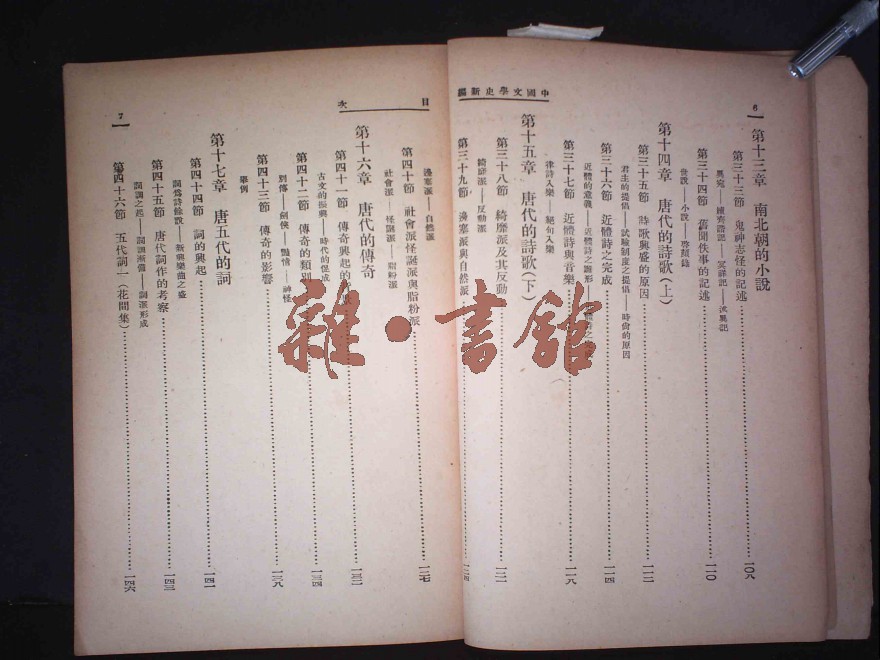 中國文學史新編
6
第十三章　南北朝的小說
第三十三節　鬼神志怪的記述 一〇八
冥祥記
第三十四節　舊聞佚事的記述 一一〇
世說——小說——啓顏錄
第十四章　唐代的詩歌(上)
第三十五節　詩歌興盛的原因 一一二
君主的提倡——試驗制度之提倡——時尚的原因
第三十六節　近體詩之完成 一一四
近體的意義——近體詩之雛形
第三十七節　近體詩與音樂 一一八
律詩入樂——絕句入樂
第十五章　唐代的詩歌(下)
第三十八節　綺靡派及其反動
綺靡派——反動派
第三十九節　邊塞派與自然派
目次
7
邊塞派——自然派
第四十節　社會派怪誕派與脂粉派 一二七
社會派——怪誕派——脂粉派
第十六章　唐代的傳奇
第四十一節　傳奇興起的 一三二
古文的振興——時代的促成
第四十二節　傳奇的類別 一三四
別傳——劍俠——豔情——神怪
第四十三節　傳奇的影響 一三八
舉例
第十七章　唐五代的詞
第四十四節　詞的興起 一四一
詞爲詩餘說——新興樂曲之盛
第四十五節　唐代詞作的考察 一四三
詞調之起——詞調漸備——詞派形成
第四十六節　五代詞一(花間集) 一四六
雜·書館